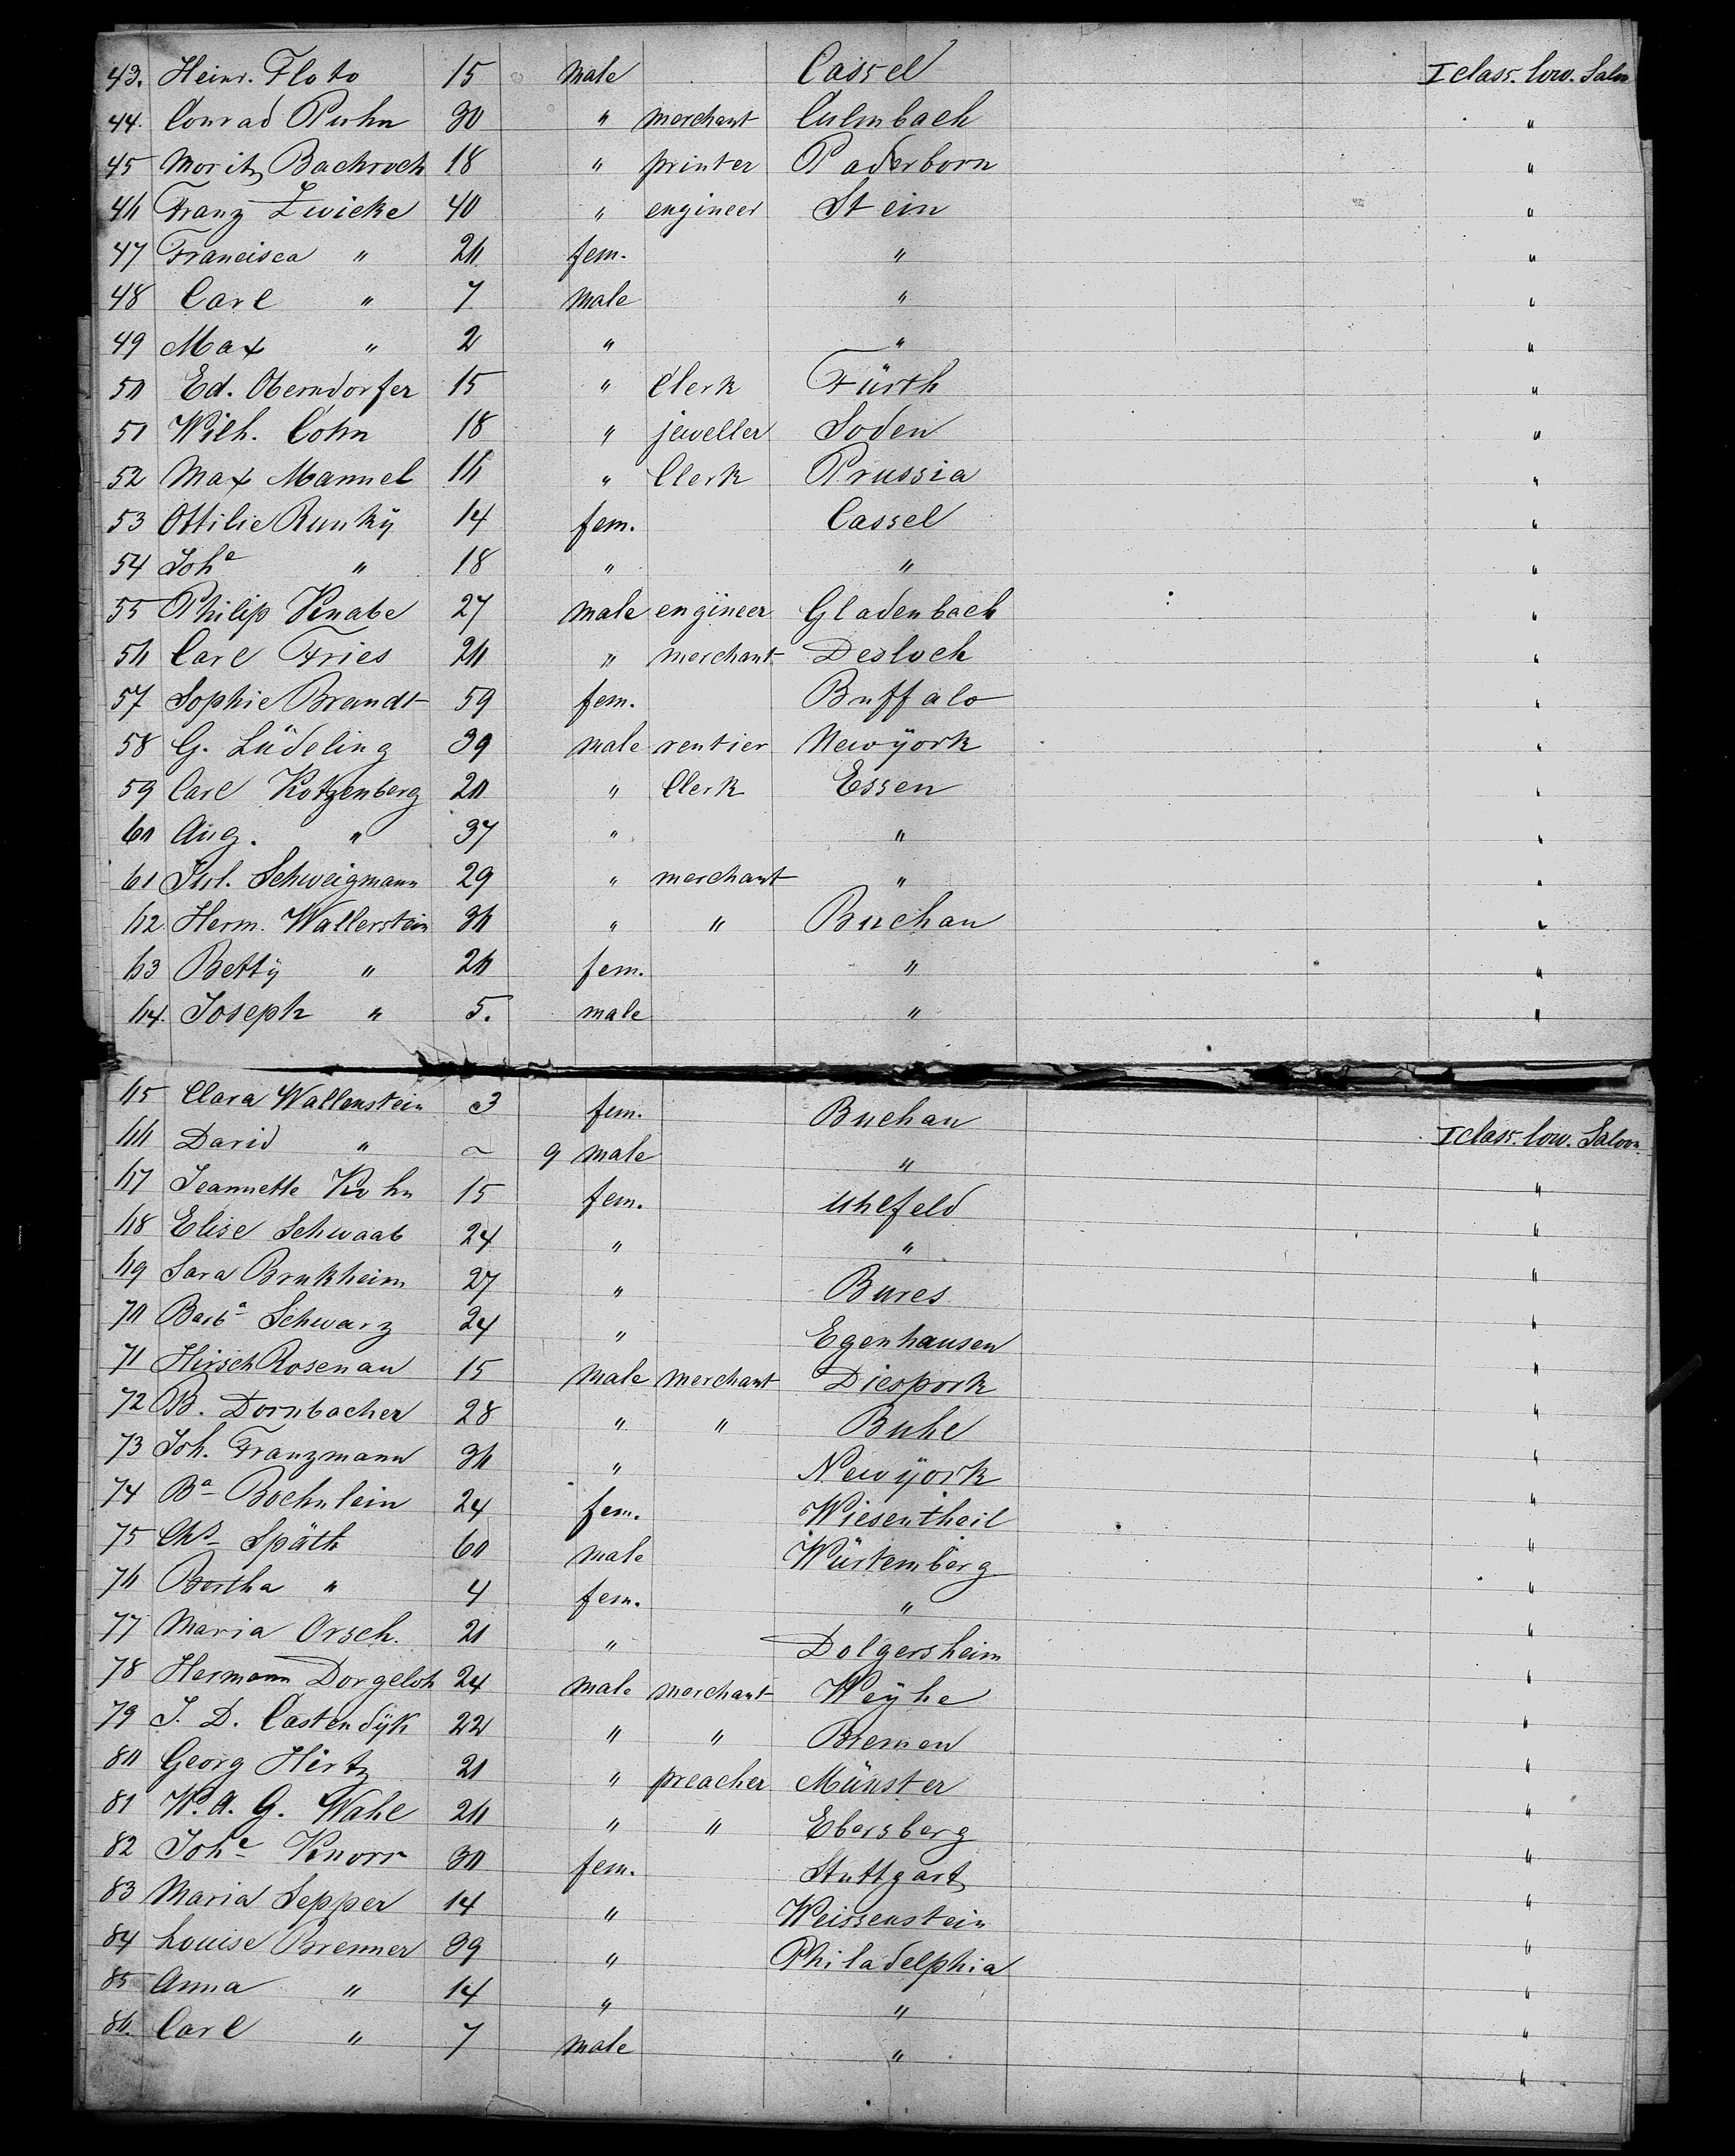 43. Heinr. Floto 15 male Cassel I class. low. Salon
44. Conrad Puhn 30 " merchant Culmbach "
45 Moritz Bachroch 18 " printer Paderborn "
46 Franz Zwicke 40 " engineer Stein "
47 Francisca " 20 fem. " "
48 Carl " 7 male " "
49 Max " 2 " " "
50 Ed. Oberndorfer 15 " Clerk Fürth "
51 Wilh. Cohn 18 " jeweller Soden "
52 Max Manuel 16 " Clerk Prussia "
53 Ottilie Runkÿ 14 fem. Cassel "
54 Joh^e " 18 " " "
55 Philip Knabe 27 male engineer Gladenbach "
56 Carl Fries 20 " merchant Desloch "
57 Sophie Brandt 59 fem. Buffalo "
58 G. Lüdeling 39 male rentier Newÿork "
59 Carl Kotzenberg 20 " Clerk Essen "
60 Aug. " 37 " " "
61 Jul. Schweigmann 29 " merchant " "
62. Herm. Wallerstein 36 " " Buchau "
63 Bettÿ " 26 fem. " "
64. Joseph " 5. male " "
65 Clara Wallenstein 3 fem. Buchau I class. low. Saloon.
66 David " ~ 9 male " "
67 Jeannette Kohn 15 fem. Uhlfeld "
68 Elise Schwaab 24 " " "
69 Sara Brukheim 27 " Bures "
70 Barb^a Schwarz 24 " Egenhausen "
71 Hirsch Rosenau 15 male merchant Diespork "
72 B. Dornbacher 28 " " Buhl "
73 Joh. Franzmann 36 " Newÿork "
74 B^a Boehnlein 24 fem. Wiesentheil "
75 Ch^s Späth 60 male Würtemberg "
76 Bertha " 4 fem. " "
77 Maria Orsch. 21 " Dolgersheim "
78 Hermann Dorgeloh 24 male merchant Weÿhe "
79 J. D. Castendÿk 22 " " Bremen "
80 Georg Hirtz 21 " preacher Münster "
81 W. A. G. Wahl 20 " " Ebersberg "
82 Joh^e Knorr 30 fem. Stuttgart "
83 Maria Sepper 14 " Weissenstein "
84 Louise Brenner 39 " Philadelphia "
85 Anna " 14 " " "
86. Carl " 7 male " "